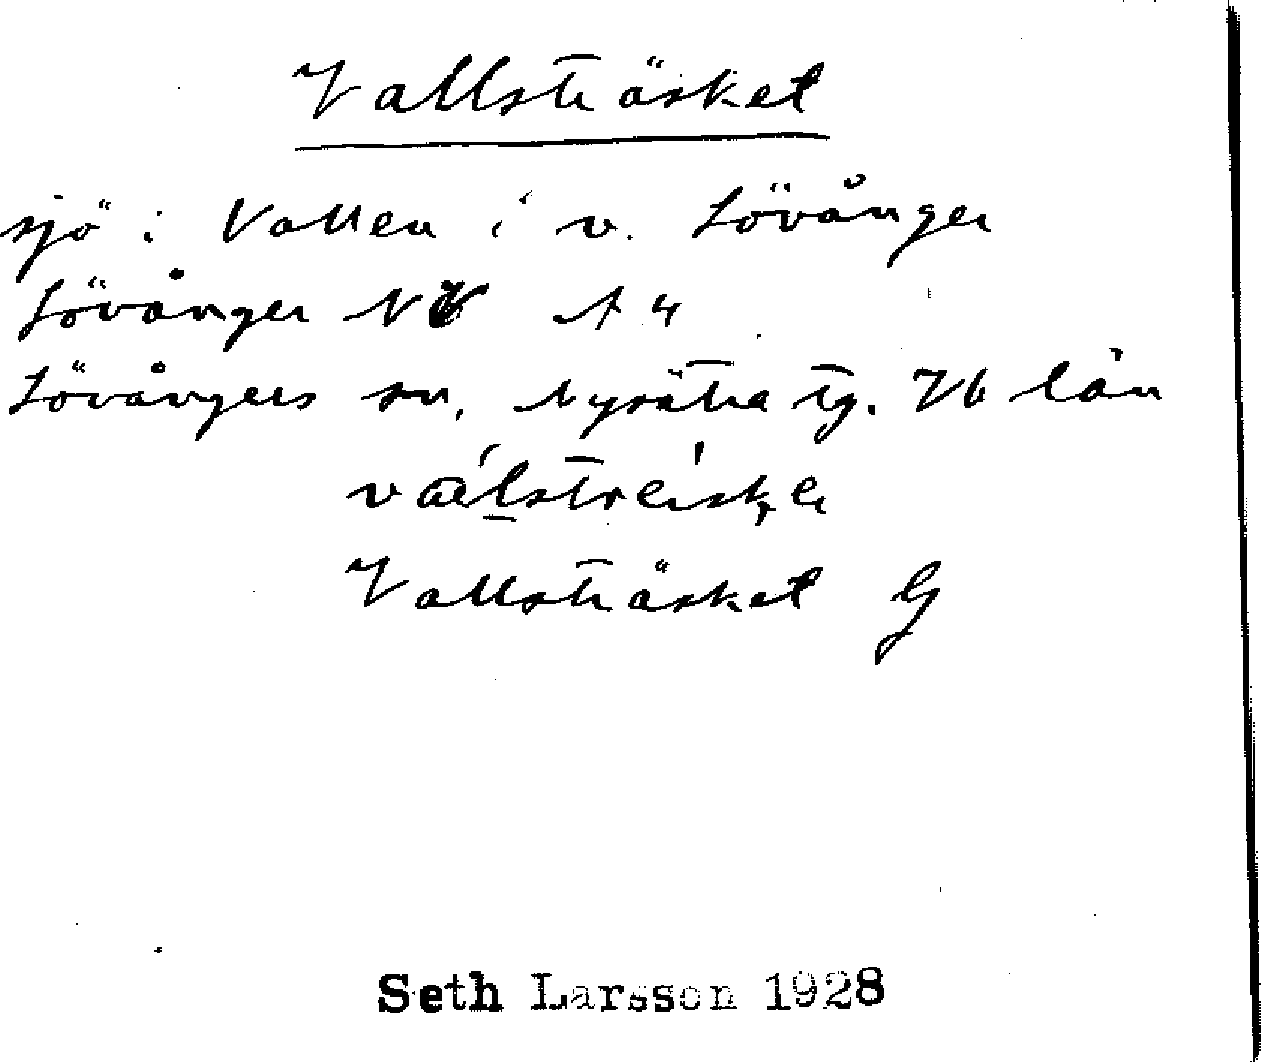 Vallsträsket
sjö i Vallen i v. Lövånger
Lövånger NV A 4
Lövångers sn, Nysätra tg. Vb län
Vallsträsket G
Seth Larsson 1928